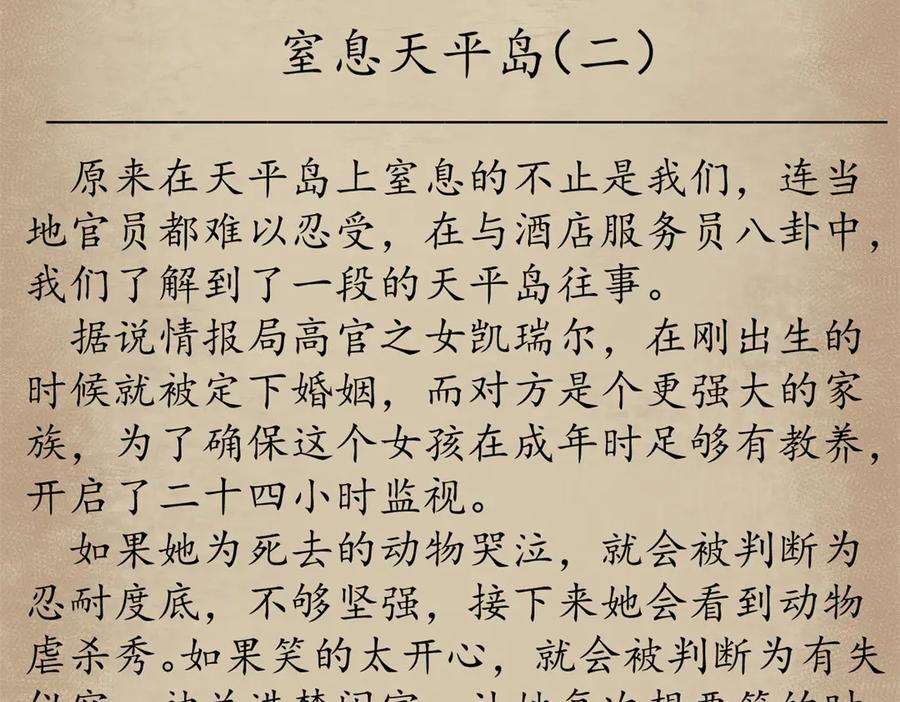 窒息天平岛(二)
原来在天平岛上窒息的不止是我们，连当
地官员都难以忍受，在与酒店服务员八卦中，
我们了解到了一段的天平岛往事。
据说情报局高官之女凯瑞尔，在刚出生的
时候就被定下婚姻，而对方是个更强大的家
族，为了确保这个女孩在成年时足够有教养，
开启了二十四小时监视。
如果她为死去的动物哭泣，就会被判断为
忍耐度底，不够坚强，接下来她会看到动物
虐杀秀。如果笑的太开心，就会被判断为有失